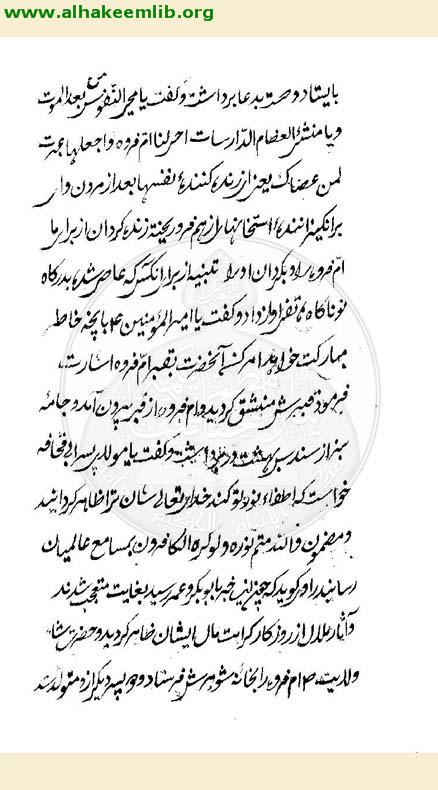 www.alhakeemlib.org
بایستاد و دست بدعا برداشت و گفت یا محیی النفوس من بعد الموت
و یا منشئ العظام الدارسات احی لنا ام فروه و اجعلها عبرت
لمن عصاک یعنی ای زنده کننده نفسها بعد از مردن و ای
برانگیزاننده استخوانها از هم فرو ریخته زنده گردان از برای ما
ام فروه را و بگردان او را تنبیه از برای آنکس که عاصی شده بدرگاه
تو ناگاه هاتفی آواز داد و گفت یا امیر المؤمنین ۴ بآنچه خاطر
مبارکت خواهد امر کن پس آنحضرت بقبر ام فروه اشارت
فرمود قبرش منشق گردید و ام فروه از قبر بیرون آمد و جامه
سبز از سندس بهشت در و گفت یا مولا پسر ابی قحافه
خواست که اطفاء نور تو کند خدای تعالی شان ترا ظاهر گردانید
و مضمون والله متم نوره و لو کره الکافرون بمسامع عالمیان
رسانید راوی گوید که چون این خبر بابوبکر و عمر رسید بغایت متعجب شدند
و آثار ملال از روزگار کراهت مال ایشان ظاهر گردید و حضرت شاه
ولایت ام فروه را بخانه شوهرش فرستاد و دو پسر دیگر از و متولد شد